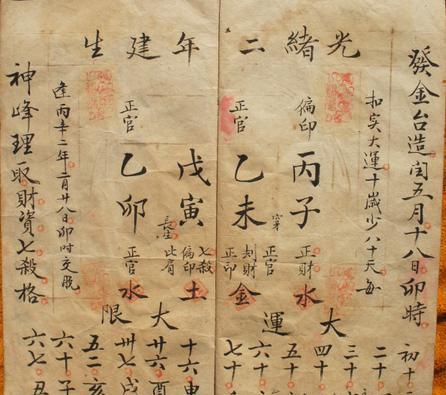 光緒二年建生
發金台造閏五月十八日卯時
扣实大運十歲少八十天每
偏印
丙子
正財
水
正官
乙未
正官
刦財
正印
金
戊寅
長生
七殺
偏印
比肩
土
正官
乙卯
正官
水
大運
初十
二十
三十
四十
五十
六十
七十
大限
十六申
廿六酉
卅七戌
五二亥
六十子
六七丑
逢丙辛之年二月廿八日卯時交脱
神峰理取財資七殺格